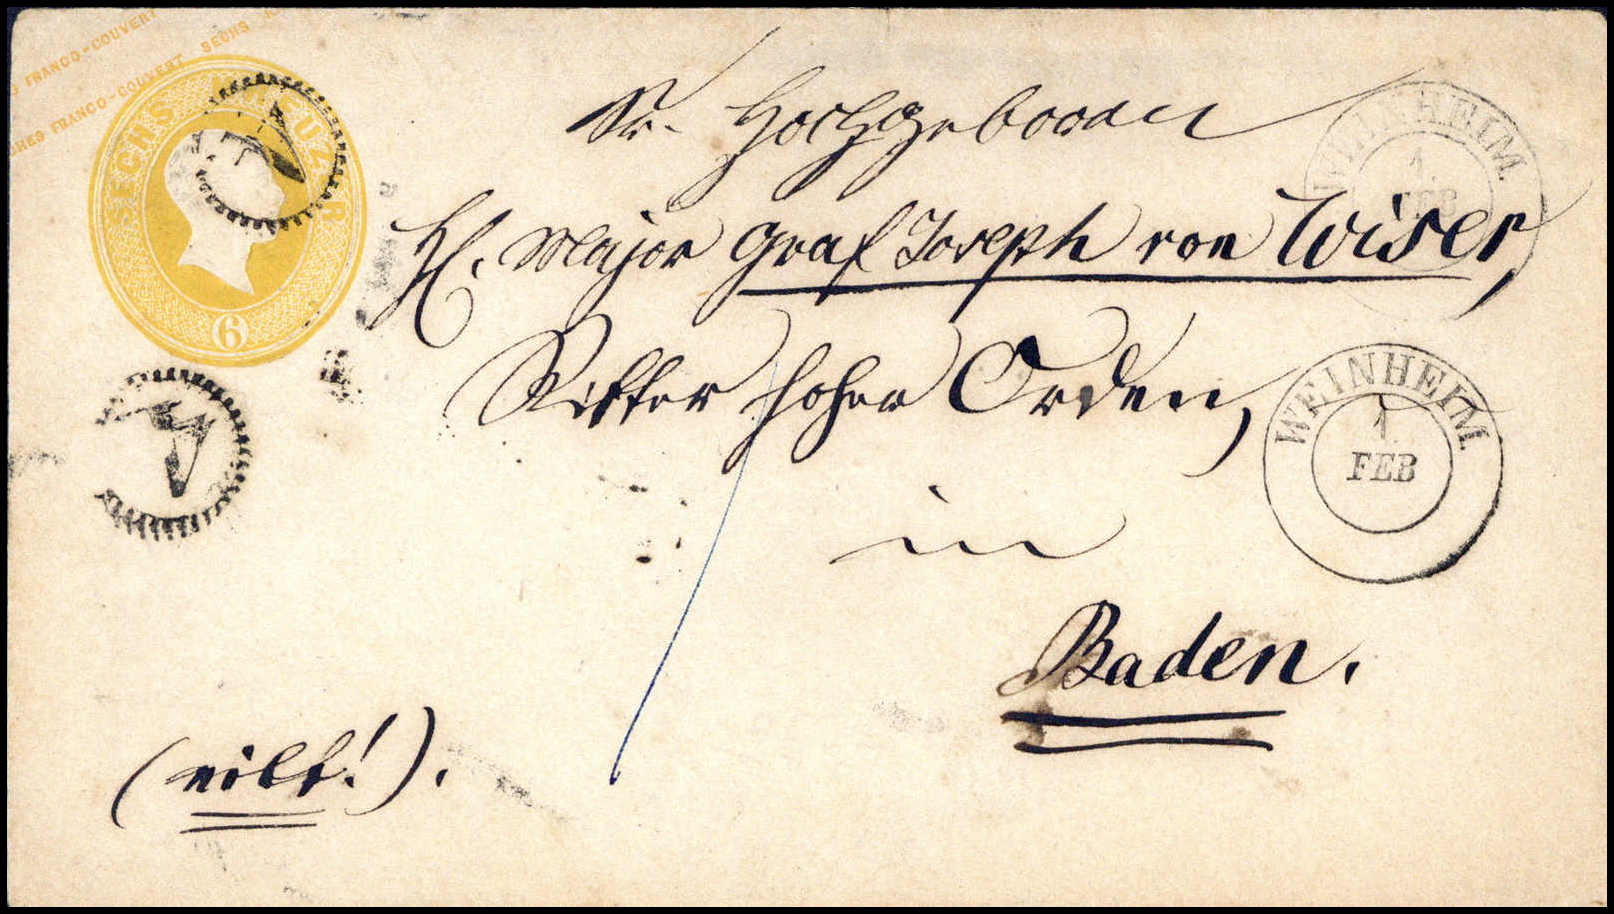 FRANCO-COUVERT
FRANCO-COUVERT SECHS
SECHS KREUZER
6
Sr. Hochgeboren
H. Major Graf Joseph von Wiser,
Ritter hoher Orden,
in
Baden.
(eilt!).
WEINHEIM.
1.
FEB
WEINHEIM.
1.
FEB